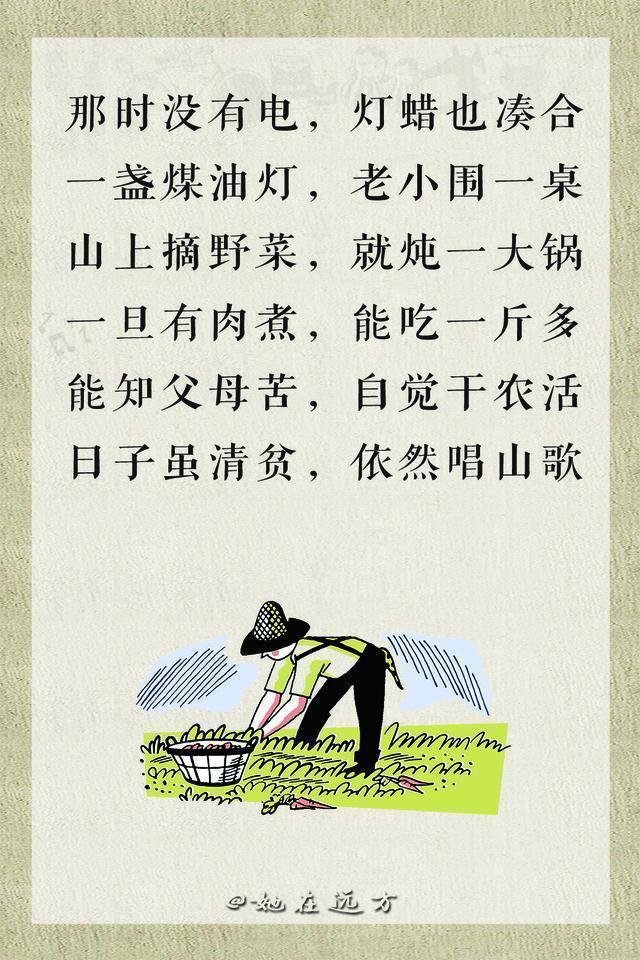 那时没有电，灯蜡也凑合
一盏煤油灯，老小围一桌
山上摘野菜，就炖一大锅
一旦有肉煮，能吃一斤多
能知父母苦，自觉干农活
日子虽清贫，依然唱山歌
@她在远方